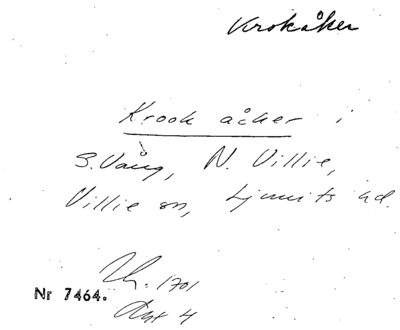 Krokåker
Krook åcker i
S. Vång, N. Villie,
Villie sn, Ljunits hd.
1701
Nr 7464.
Akt 4